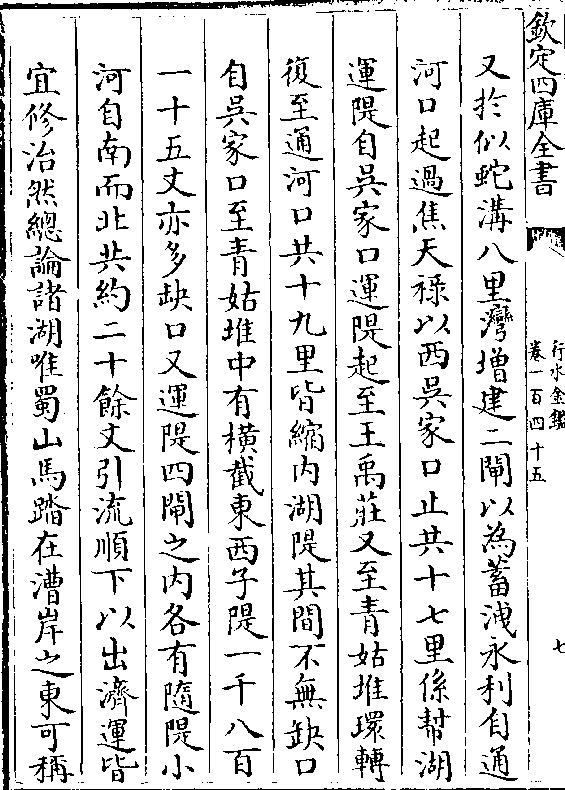 欽定四庫全書
行水金鑑
卷一百四十五
七
又於似蛇溝八里灣增建二閘以為蓄洩永利自通
河口起過焦天祿以西吳家口止共十七里係幇湖
運隄自吳家口運隄起至王禹莊又至青姑堆環轉
復至通河口共十九里皆縮内湖隄其間不無缺口
自吳家口至青姑堆中有横截東西子隄一千八百
一十五丈亦多缺口又運隄四閘之内各有隨隄小
河自南而北共約二十餘丈引流順下以出濟運皆
宜修治然總論諸湖唯蜀山馬踏在漕岸之東可稱